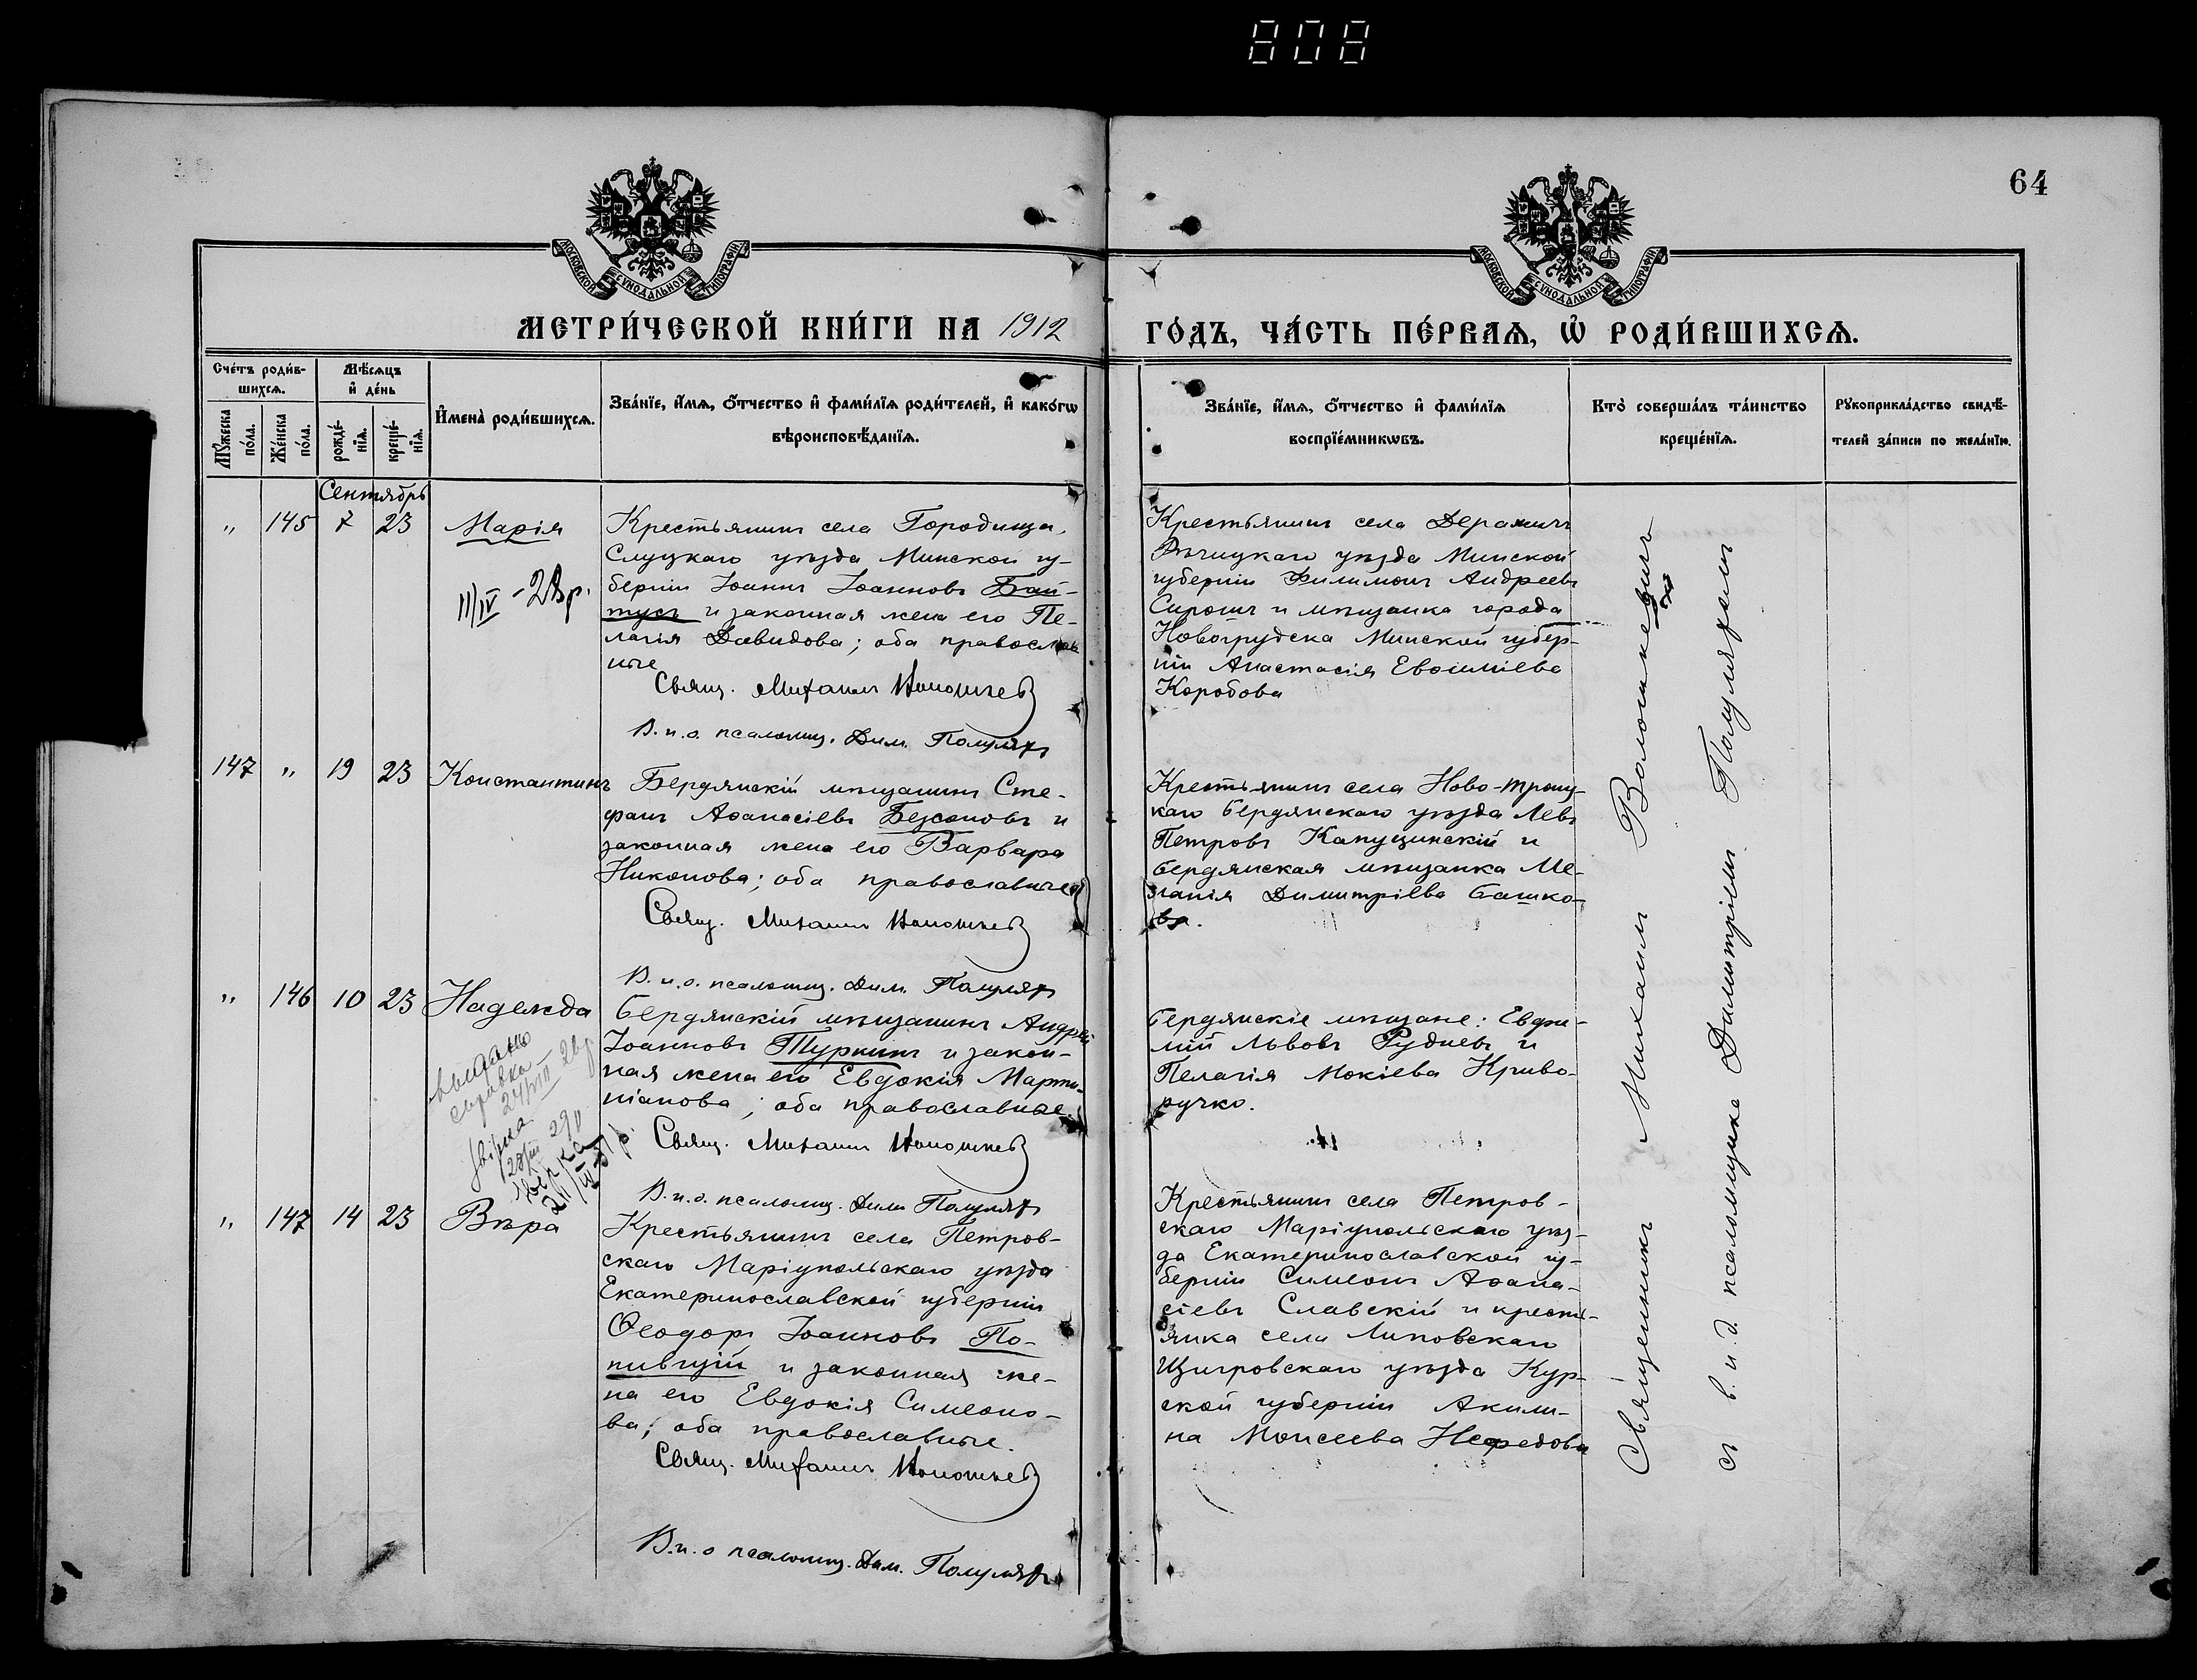 808
64
МОСКОВСКОЙ СѴНОДАЛЬНОЙ ТИПОГРАФІИ
МОСКОВСКОЙ СѴНОДАЛЬНОЙ ТИПОГРАФІИ
МЕТРИ́ЧЕСКОЙ КНИ́ГИ НА 1912
ГО́ДЪ, ЧА́СТЬ ПЕ́РВАѦ, Ѡ҆ РОДИ́ВШИХСѦ.
Сче́тъ роди́в-
шихсѧ.
Мѣ́сѧцъ
и҆ де́нь
Мꙋ́жеска
по́ла.
Же́нска
по́ла.
рожде́-
нїѧ.
креще́-
нїѧ.
И҆мена̀ роди́вшихсѧ.
Зва́нїе, и҆́мѧ, ѻ҆́тчество и҆ фами́лїѧ роди́телей, и҆ како́гѡ
вѣроисповѣ́данїѧ.
Зва́нїе, и҆́мѧ, ѻ҆́тчество и҆ фами́лїѧ
воспрїе́мникѡвъ.
Кто̀ соверша́лъ та́инство
креще́нїѧ.
Рꙋкоприкла́дство свидѣ́-
телей за́писи по жела́нїю.
Сентябрь
" 145 7 23 Марія
II/IV - 28 р.
Крестьянинъ села Городища,
Слуцкаго уѣзда Минской гу-
берніи Іоаннъ Іоанновъ Бай-
тусъ и законная жена его Пе-
лагія Давидова; оба православ
ные
Свящ. Михаилъ
В. и. о. псаломщ. Дим. Полуляхъ
Крестьянинъ села
Рѣчицкаго уѣзда Минской
губерніи Филимонъ Андреевъ
и мѣщанка города
Новогрудска Минской губер-
ніи Анастасія
Коробова
147 " 19 23 Константинъ
Бердянскій мѣщанинъ Сте-
фанъ Аѳанасіевъ Безсоновъ и
законная жена его Варвара
Никонова; оба православные
Свящ. Михаилъ
В. и. о. псаломщ. Дим. Полуляхъ
Крестьянинъ села Ново-Троиц-
каго Бердянскаго уѣзда Левъ
Петровъ Капущинскій и
Бердянская мѣщанка Ме-
ланія Димитріева Башко-
ва.
" 146 10 23 Надежда
выдано
справка
Бердянскій мѣщанинъ Андрей
Іоанновъ Туркинъ и закон-
ная жена его Евдокія Марти-
ніанова; оба православные.
Свящ. Михаилъ
В. и. о. псаломщ. Дим. Полуляхъ
Бердянскіе мѣщане: Евфи-
мій Львовъ Рудневъ и
Пелагія Мокіева Криво-
ручко.
" 147 14 23 Вѣра
Крестьянинъ села Петров-
скаго Маріупольскаго уѣзда
Екатеринославской губерніи
Ѳеодоръ Іоанновъ По-
пивщій и законная же-
на его Евдокія Симеоно-
ва; оба православные.
Свящ. Михаилъ
В. и. о псаломщ. Дим. Полуляхъ
Крестьянинъ села Петров-
скаго Маріупольскаго уѣз-
да Екатеринославской гу-
берніи Симеонъ Аѳана-
сіевъ Славскій и крестья-
янка села Липовскаго
Щигровскаго уѣзда Кур-
ской губерніи Акили-
на Моисеева Нефедова
Священникъ Михаилъ
съ в. и. д. псаломщика Димитріемъ Полуляхомъ